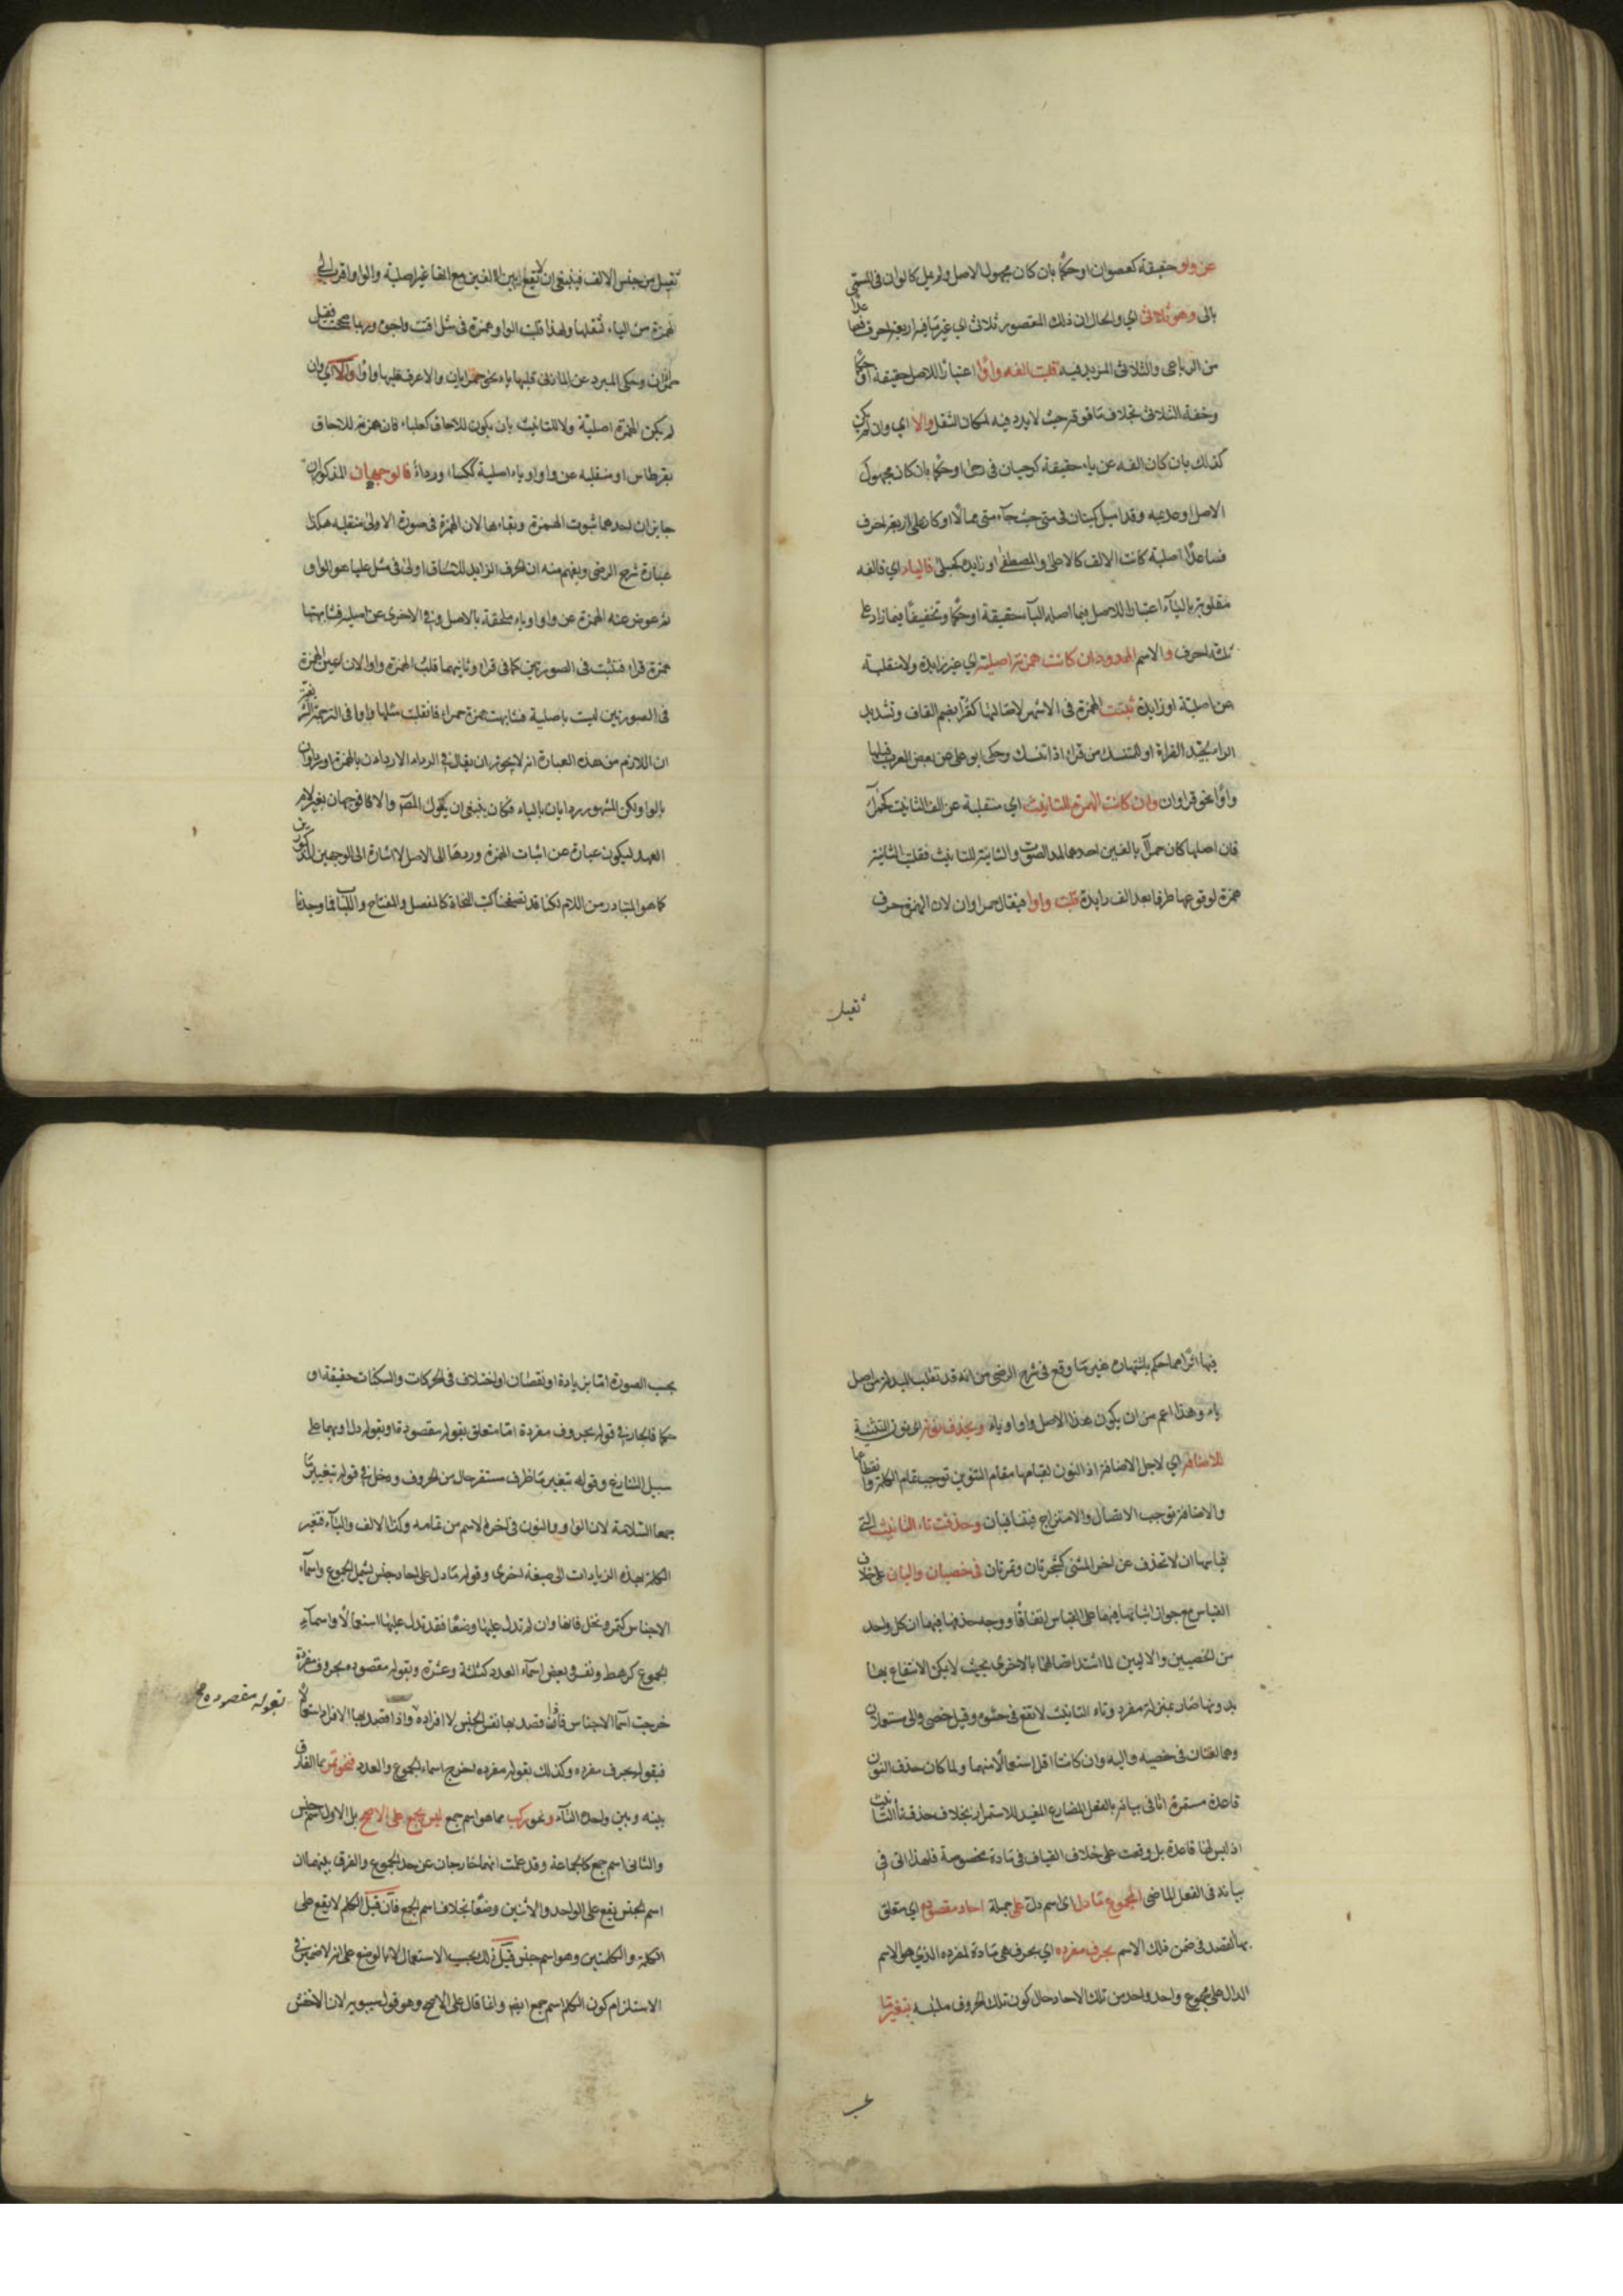 عن واو حقيقة كعصوان او حكما بان كان مجهول الاصل ولم يمل كالوان في المسمى
بالى وهو ثلاثي اي والحال ان ذلك المقصور ثلاثي اي غير ما فيه اربعة احرف فصاعدا
من الرباعي والثلاثي المزيد فيه قلبت الفه واوا اعتبارا للاصل حقيقة او حكما
وخفة الثلاثي بخلاف ما فوقه حيث لا يرد فيه لمكان الثقل والا اي وان لم يكن
كذلك بان كان الفه عن ياء حقيقة كرحيان في رحى او حكما بان كان مجهول
الاصل او عديمه وقد اميل كمتيان في متى حيث جاء متى ممالا او كان على اربعة احرف
فصاعدا اصلية كانت الالف كالاعلى والمصطفى او زايدة كحبلى فالياء اي فالفه
مقلوبة بالياء اعتبارا للاصل فيما اصله الياء حقيقة او حكما وتخفيفا فيما زاد على
ثلثة احرف والاسم الممدود ان كانت همزته اصلية اي غير زايدة ولا منقلبة
عن اصلية او زايدة ثبتت الهمزة في الاشهر لاصالتها كقراء بضم القاف وتشديد
الراء لجيد القراءة او للمتنسك من قرأ اذا تنسك وحكى ابو علي عن بعض العرب قلبها
واوا نحو قراوان وان كانت الهمزة للتانيث اي منقلبة عن الف التانيث كحمراء
فان اصلها كان حمرا بالفين احدهما لمد الصوت والثانية للتانيث فقلبت الثانية
همزة لوقوعها طرفا بعد الف زايدة قلبت واوا فيقال حمراوان لان الهمزة حرف
ثقيل
ثقيل من جنس الالف فينبغي ان لا تقع بين الالفين مع انها غير اصلية والواو اقرب الى
الهمزة من الياء لثقلها ولهذا قلبت الواو همزة في مثل اقتت واجوه وربما صححت فقيل
حمراان وحكى المبرد عن المازني قلبها ياء نحو حمرايان والاعرف قلبها واوا والا اي وان
لم يكن الهمزة اصلية ولا للتانيث بان يكون للالحاق كعلباء فان همزته للالحاق
بقرطاس او منقلبه عن واو او ياء اصلية ككساء ورداء فالوجهان المذكوران
جايزان احدهما ثبوت الهمزة وبقاءها لان الهمزة في صورة الاولى منقلبه هكذا
عبارة شرح الرضي ويفهم منه ان الحرف الزايد للالحاق اولى في مثل علباء هو الواو
ثم عوض عنه الهمزة عن واو او ياء ملحقة بالاصل وفي الاخرى عن اصلية فشابهتها
همزة قراء فتثبت في الصورتين كما في قراء وثانيهما قلب الهمزة واوا لان عين الهمزة
في الصورتين ليست باصلية فشابهت همزة حمراء فانقلبت مثلها واوا في الترجمة الشريفة
ان اللازم من هذه العبارة انه لا يجوز ان يقال في الرداء الا رداءان بالهمزة او رداوان
بالواو ولكن المشهور ردايان بالياء فكان ينبغي ان يقول المص والا فالوجهان بغير لام
العهد ليكون عبارة عن اثبات الهمزة وردها الى الاصل لا اشارة الى الوجهين المذكورين
كما هو المتبادر من اللام لكنا قد تصفحنا كتب النحاة كالمفصل والمفتاح واللباب فما وجدنا
فيها اثرا مما حكم باشتهاره غير ما وقع في شرح الرضي من انه قد تقلب المبدلة من اصل
ياء وهذا اعم من ان يكون هذا الاصل واوا او ياء ويحذف نونه اي نون التثنية
للاضافة اي لاجل الاضافة اذ النون لقيامها مقام التنوين توجب تمام الكلمة وانقطاعها
والاضافة توجب الاتصال والامتزاج فيتنافيان وحذفت تاء التانيث التي
قياسها ان لا تحذف عن اخر المثنى كشجرتان وتمرتان في خصيان واليان على خلاف
القياس مع جواز اثباتها فيهما على القياس اتفاقا ووجه حذفها فيهما ان كل واحد
من الخصيين والاليين لما اشتد اتصالها بالاخرى بحيث لا يمكن الانتفاع بها
بدونها صارتا بمنزلة مفرد وتاء التانيث لا تقع في حشوه وقيل خصي والي مستعملان
وهما لغتان في خصيه واليه وان كانتا اقل استعمالا منهما ولما كان حذف النون
قاعدة مستمرة اتى في بيانه بالفعل المضارع المفيد للاستمرار بخلاف حذف تاء التانيث
اذ ليس لها قاعدة بل وقعت على خلاف القياس في مادة مخصوصة فلهذا اتى في
بيانه في الفعل الماضي المجموع ما دل اي اسم دل على جملة احاد مقصودة اي متعلق
بها القصد في ضمن ذلك الاسم بحروف مفرده اي بحروف هي مادة لمفرده الذي هو الاسم
الدال على مجموع واحد واحد من تلك الاحاد حال كون تلك الحروف ملتبسه بتغيير ما
بحسب
بحسب الصورة اما بزيادة او نقصان او اختلاف في الحركات والسكنات حقيقة او
حكما فالجار في قوله بحروف مفردة اما متعلق بقوله مقصودة او بقوله دل او بهما على
سبيل التنازع وقوله بتغيير ما ظرف مستقر حال من الحروف ودخل في قوله بتغيير ما
جمعا السلامة لان الواو والنون في اخره الاسم من تمامه وكذا الالف والتاء فتغير
الكلمة بهذه الزيادات الى صيغة اخرى وقوله ما دل على احاد جنس يشمل المجموع واسماء
الاجناس كتمر ونخل فانها وان لم تدل عليها وضعا فقد تدل عليها استعمالا واسماء
الجموع كرهط ونفر وبعض اسماء العدد كثلثة وعشرة وبقوله مقصوده بحروف مفرده
خرجت اسماء الاجناس فانه اذا قصد بها نفس الجنس لا افراده واذا قصد بها الافراد استعمالا
بقوله مقصوده صح
فبقوله بحروف مفرده وكذلك بقوله مفرده اخرج اسماء الجموع والعدد فنحو تمر مما الفارق
بينه وبين واحده التاء ونحو ركب مما هو اسم جمع ليس بجمع على الاصح بل الاول اسم جنس
والثاني اسم جمع كالجماعة وقد علمت انهما خارجان عن حد المجموع والفرق بينهما ان
اسم الجنس يقع على الواحد والاثنين وضعا بخلاف اسم الجمع فان قيل الكلم لا يقع على
الكلمة والكلمتين وهو اسم جنس قيل ذلك بحسب الاستعمال لا بالوضع على انه لا ضير في
الاستلزام كون الكلم اسم جمع ايضا وانما قال على الاصح وهو قول سيبويه لان الاخفش